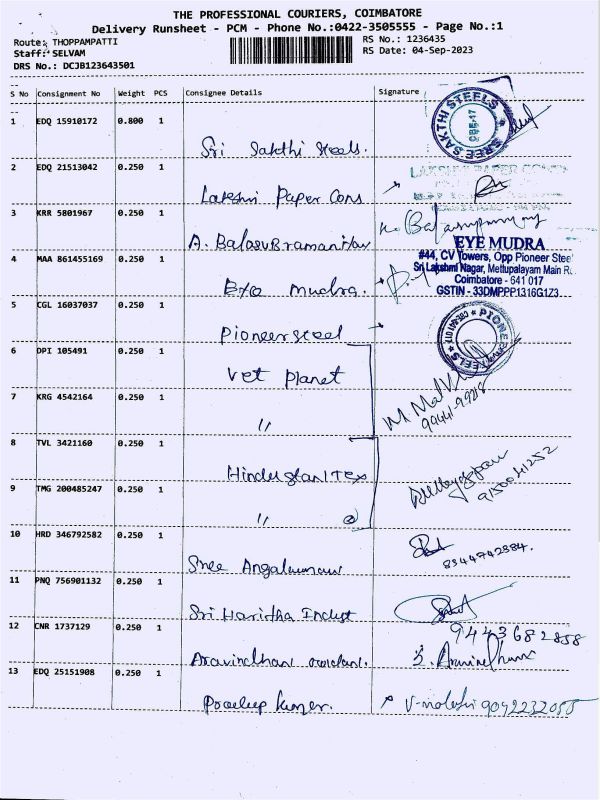 THE PROFESSIONAL COURIERS, COIMBATORE
Delivery Runsheet - PCM - Phone No.:0422-3505555 - Page No.:1
Route: THOPPAMPATTI
RS No.: 1236435
Staff: SELVAM
RS Date: 04-Sep-2023
DRS No.: DCJB123643501
S No Consignment No Weight PCS Consignee Details Signature
1 EDQ 15910172 0.800 1
Sri Sakthi Steels.
SREE SAKTHI STEELS
CBE-17
2 EDQ 21513042 0.250 1
Lakshmi Paper Cons
LAKSHMI PAPER
3 KRR 5801967 0.250 1
A. Balasubramaniam
4 MAA 861455169 0.250 1
Eye Mudra.
EYE MUDRA
#44, CV Towers, Opp Pioneer Stee
Sri Lakshmi Nagar, Mettupalayam Main R
Coimbatore - 641 017
GSTIN - 33DMPPP1316G1Z3
5 CGL 16037037 0.250 1
Pioneer steel
PIONEER STEELS
CBE-641 017
6 DPI 105491 0.250 1
Vet planet
7 KRG 4542164 0.250 1
"
99441-9928
8 TVL 3421160 0.250 1
Hindustan Tex
9 TMG 200485247 0.250 1
"
9150041252
10 HRD 346792582 0.250 1
Sree Angalamman
8344742384.
11 PNQ 756901132 0.250 1
Sri Haridha Indust
12 CNR 1737129 0.250 1
9443682858
Aravindhan
S. Aravindhan
13 EDQ 25151908 0.250 1
Pradeep kumar.
9092232055